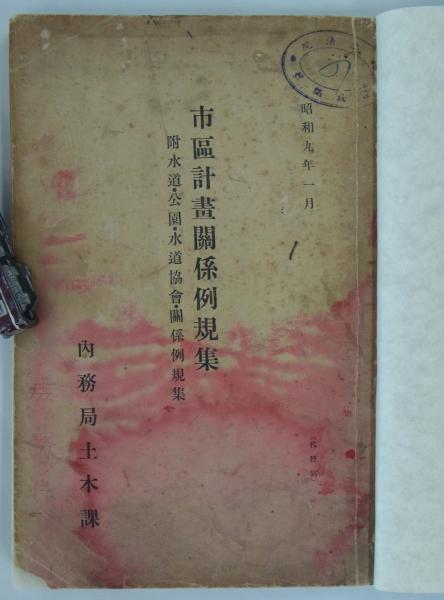 昭和九年一月
市區計畫關係例規集
附水道・公園・水道協會・關係例規集
內務局土木課